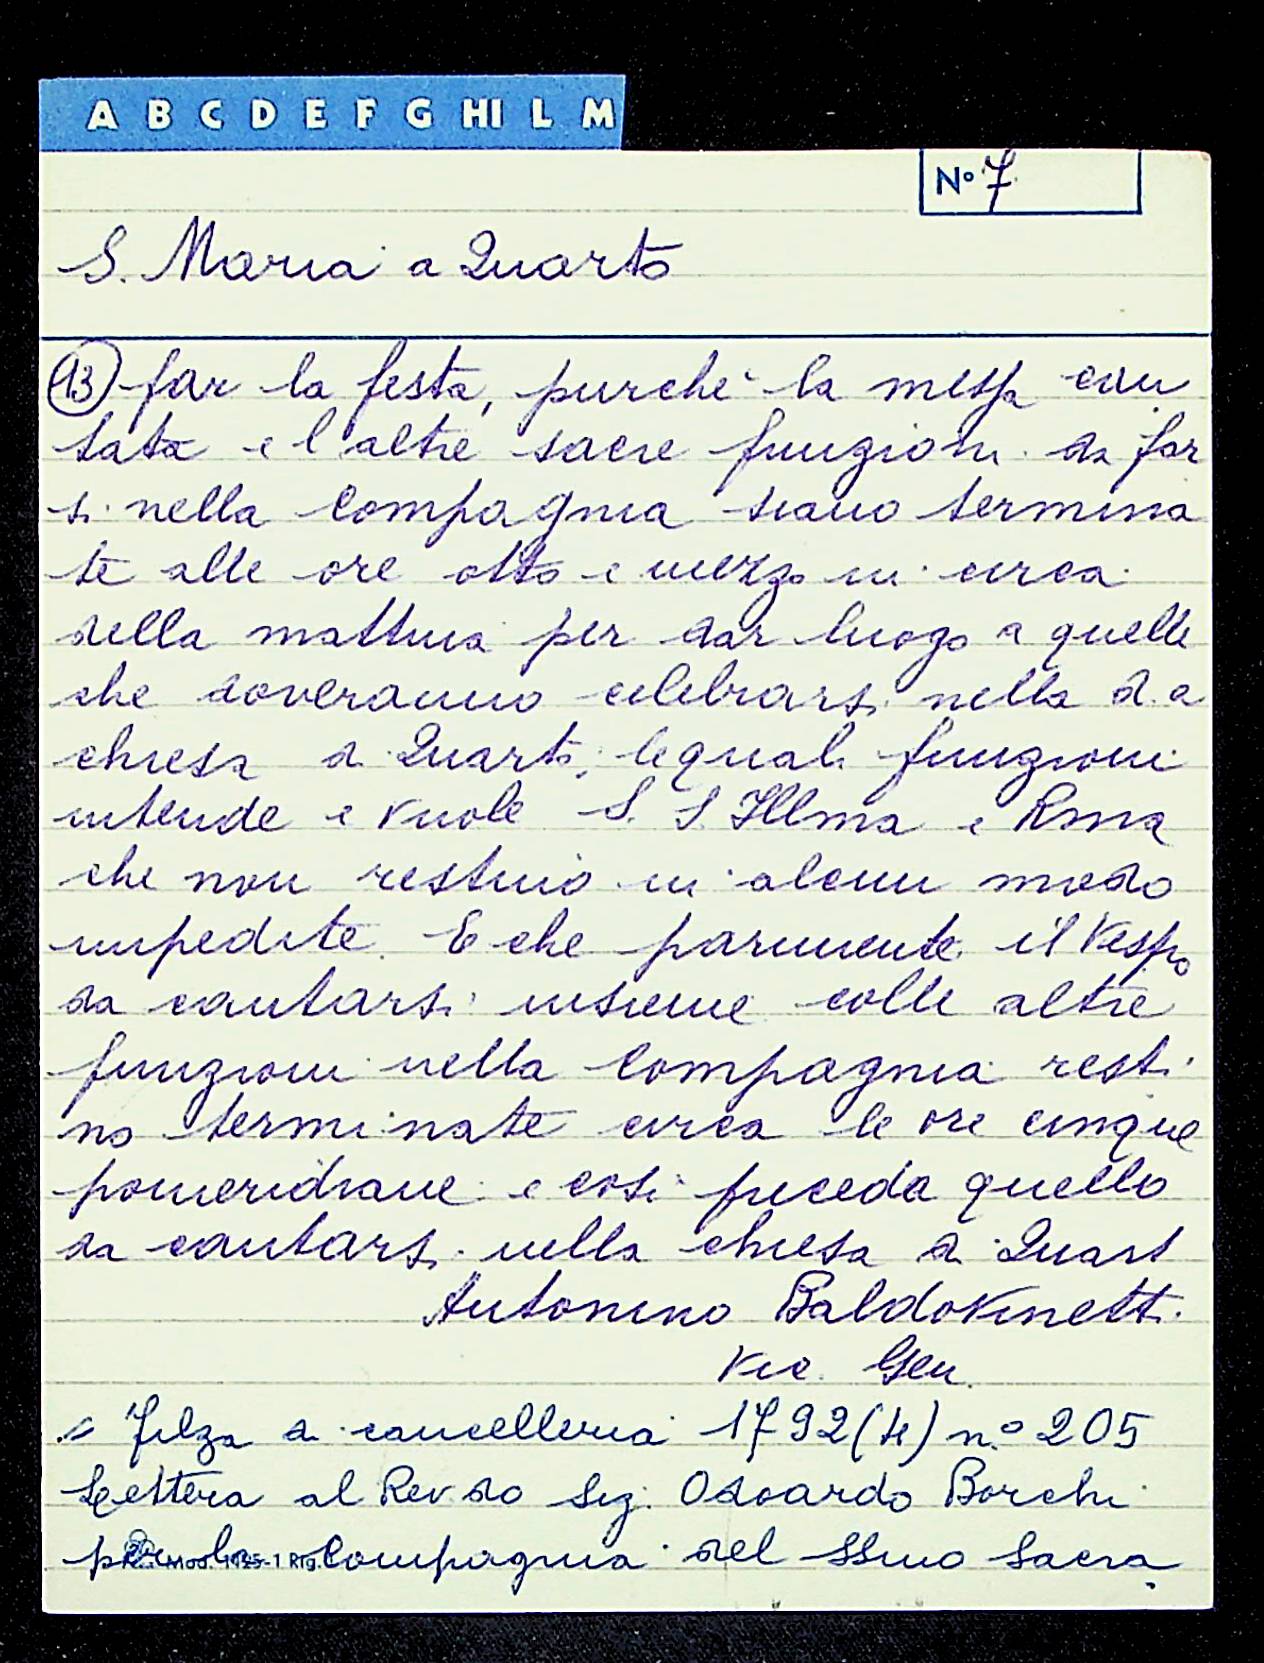 A B C D E F G HI L M
N° 7
S. Maria a Quarto
(13) far la festa, purchè la messa can
tata e l'altre sacre funzioni da far
si nella Compagnia siano termina
te alle ore otto e mezzo in circa
della mattina per dar luogo a quelle
che doveranno celebrarsi nella d.a
chiesa di Quarto, le quali funzioni
intende e vuole S. S. Illma e Rma
che non restino in alcun modo
impedite. E che parimente il Vespro
da cantarsi insieme colle altre
funzioni nella Compagnia resti
no terminate circa le ore cinque
pomeridiane e così preceda quello
da cantarsi nella chiesa di Quart
Antonino Baldovinetti
Vic. Gen.
Filza di cancelleria 1792 (4) n.° 205
Lettera al Rev.do Sig. Odoardo Borchi
per la Compagnia del SSmo Sacra
Mod. 1125-1 Rig.